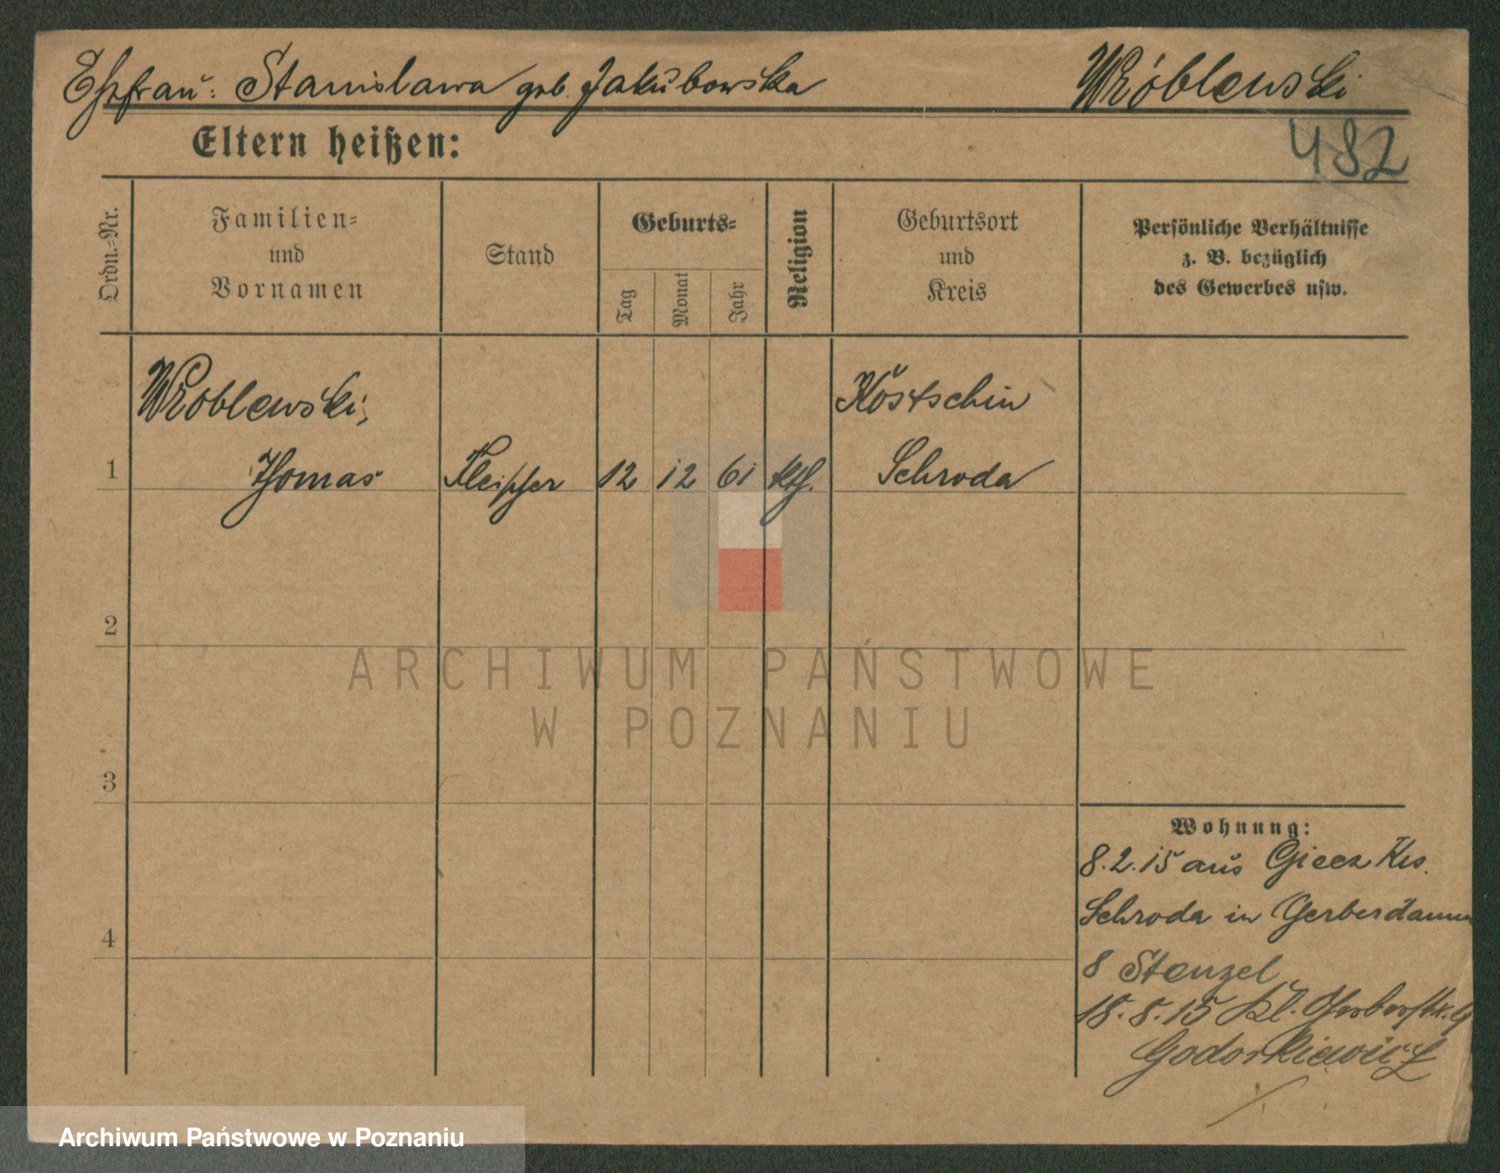 Ehefrau: Stanislawa geb. Jakubowska Wróblewski
Eltern heißen:
482
Ordn.-Nr.
Familien-
und
Vornamen
Stand
Geburts-
Tag
Monat
Jahr
Religion
Geburtsort
und
Kreis
Persönliche Verhältnisse
z. B. bezüglich
des Gewerbes usw.
Wroblewski, Kostschin
1 Thomas Fleischer 12 12 61 kth. Schroda
2
ARCHIWUM PAŃSTWOWE
W POZNANIU
3
Wohnung:
8.2.15 aus Giecz Krs.
Schroda in Gerberdamm
4
8 Stenzel
18.8.15 Kl. Gerberstr.
Archiwum Państwowe w Poznaniu